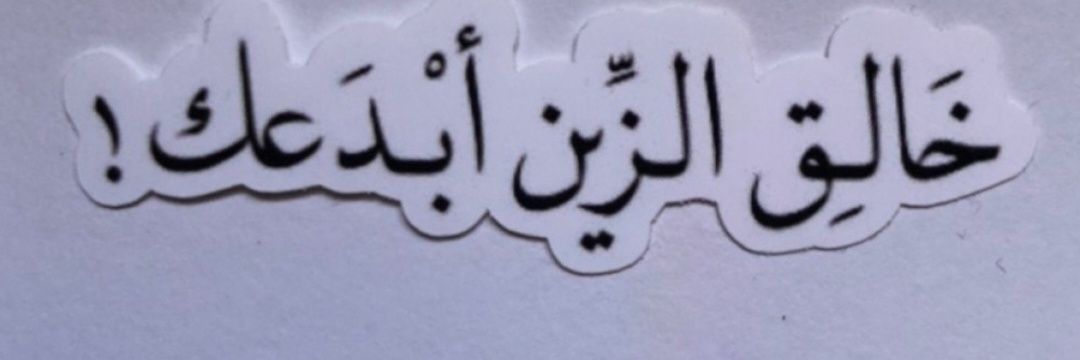 خَالِق الزِّين أبْدَعك !